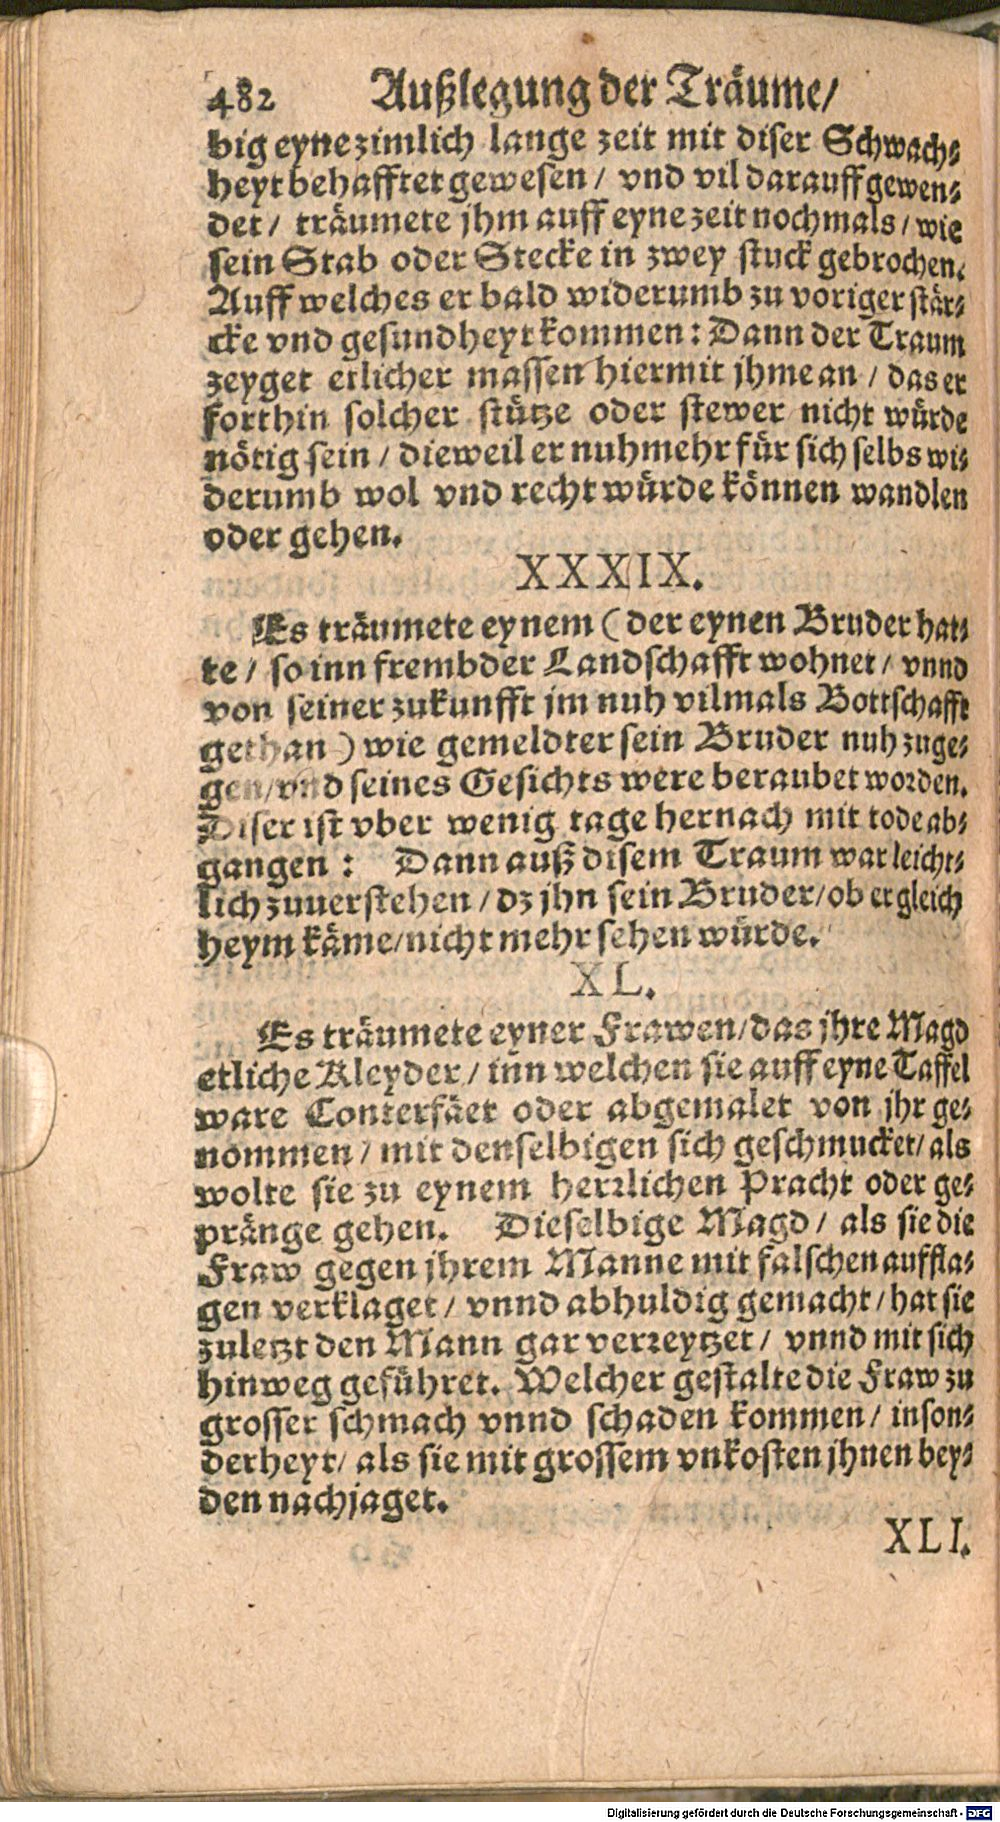 482 Außlegung der Träume/
big eyne zimlich lange zeit mit diser Schwach⸗
heyt behafftet gewesen / vnd vil darauff gewen⸗
det / träumete jhm auff eyne zeit nochmals / wie
sein Stab oder Stecke in zwey stuck gebrochen.
Auff welches er bald widerumb zu voriger stär⸗
cke vnd gesundheyt kommen: Dann der Traum
zeyget etlicher massen hiermit jhme an / das er
forthin solcher stütze oder stewer nicht würde
nötig sein / dieweil er nuhmehr für sich selbs wi⸗
derumb wol vnd recht würde können wandlen
oder gehen.
XXXIX.
Es träumete eynem (der eynen Bruder hat⸗
te / so inn frembder Landschafft wohnet / vnnd
von seiner zukunfft jm nuh vilmals Bottschafft
gethan) wie gemeldter sein Bruder nuh zuge⸗
gen/vnd seines Gesichts were beraubet worden.
Diser ist vber wenig tage hernach mit tode ab⸗
gangen: Dann auß disem Traum war leicht⸗
lich zuuerstehen / dz jhn sein Bruder/ob er gleich
heym käme/nicht mehr sehen würde.
XL.
Es träumete eyner Frawen/das jhre Magd
etliche Kleyder / inn welchen sie auff eyne Taffel
ware Conterfäet oder abgemalet von jhr ge⸗
nommen / mit denselbigen sich geschmucket/als
wolte sie zu eynem herrlichen Pracht oder ge⸗
pränge gehen. Dieselbige Magd / als sie die
Fraw gegen jhrem Manne mit falschen auffla⸗
gen verklaget / vnnd abhuldig gemacht / hat sie
zuletzt den Mann gar verreytzet / vnnd mit sich
hinweg geführet. Welcher gestalte die Fraw zu
grosser schmach vnnd schaden kommen / inson⸗
derheyt/ als sie mit grossem vnkosten jhnen bey⸗
den nachjaget.
XLI.
Digitalisierung gefördert durch die Deutsche Forschungsgemeinschaft - DFG